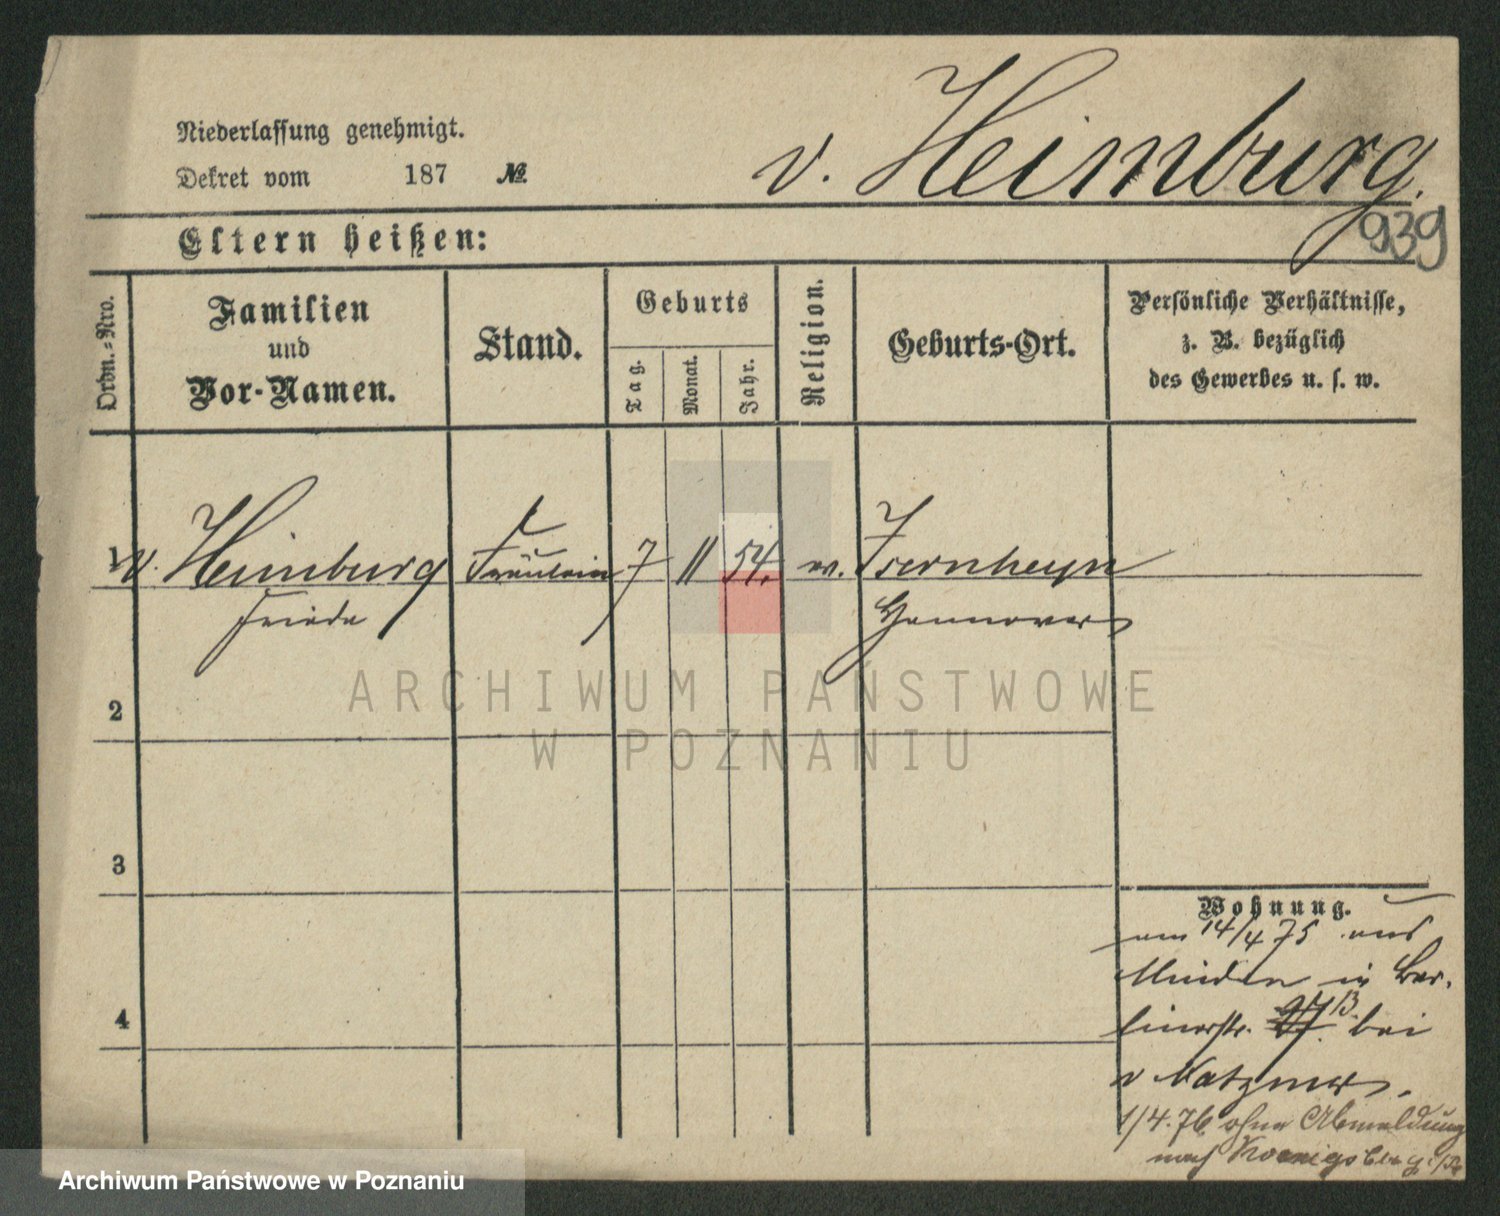 Niederlassung genehmigt.
Dekret vom 187 №
v. Heimburg.
939
Eltern heißen:
Ordn.-Nro.
Familien
und
Vor-Namen.
Stand.
Geburts
Tag.
Monat.
Jahr.
Religion.
Geburts-Ort.
Persönliche Verhältnisse,
z. B. bezüglich
des Gewerbes u. s. w.
1 v. Heimburg Fräulein 7 11 54. ev.
Frieda Hannover
2
3
4
Wohnung.
am 14/4 75 aus
Minden in Ber-
linerstr. bei
v Natzmer.
1/4.76 ohne Abmeldung
nach Koenigsberg i/Pr
ARCHIWUM PAŃSTWOWE
W POZNANIU
Archiwum Państwowe w Poznaniu